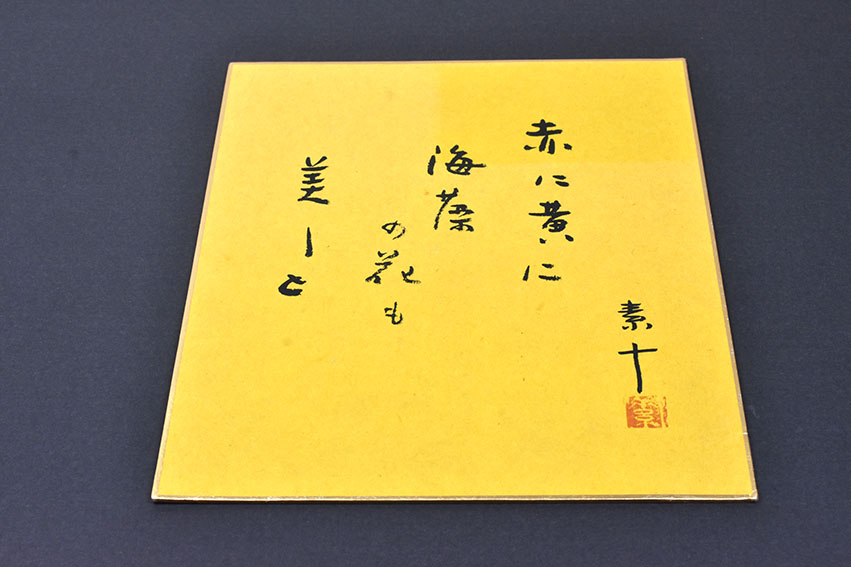 赤に黄に
海藻
の花も
美しと
素十